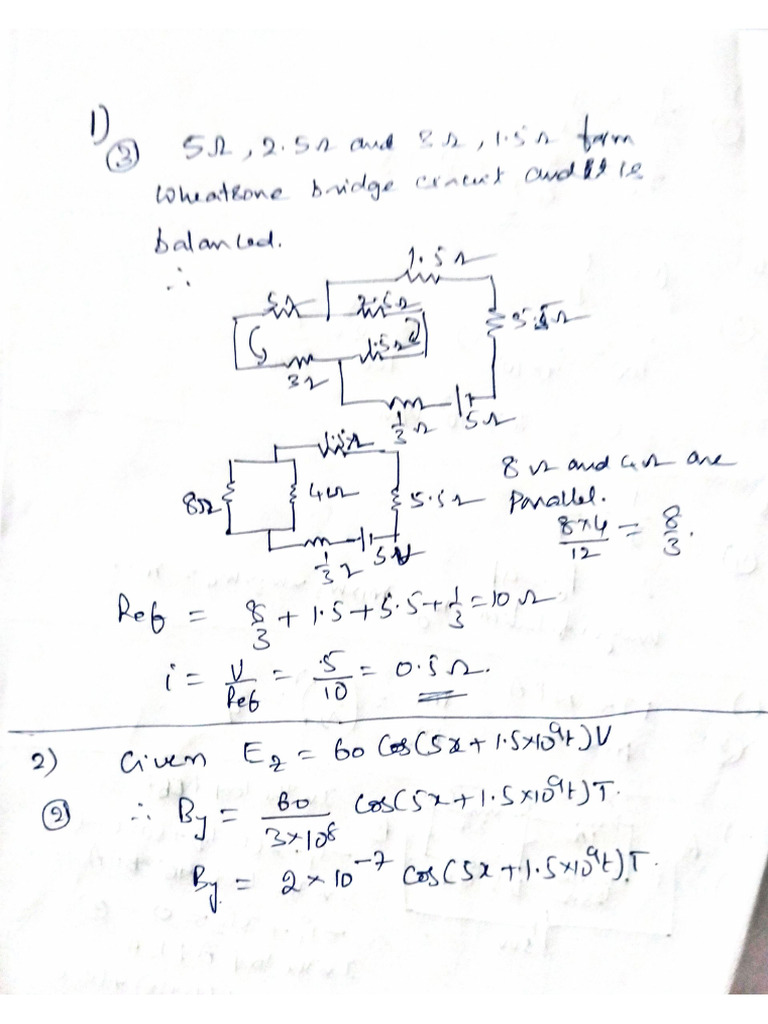 1)
③ 5Ω, 2.5Ω and 3Ω, 1.5Ω form
Wheatsone bridge circuit and it is
balanced.
∴
1.5Ω
5Ω 2.5Ω
5.5Ω
1.5Ω
3Ω
1/3 Ω 5Ω
1.5Ω
8Ω 4Ω 5.5Ω
8Ω and 4Ω are
Parallel.
8×4/12 = 8/3.
1/3 Ω 5V
Reff = 8/3 + 1.5 + 5.5 + 1/3 = 10Ω
i = V/Reff = 5/10 = 0.5Ω.
2) Given E_z = 60 Cos(5x + 1.5×10⁹t)V
② ∴ By = 60/3×10⁸ Cos(5x + 1.5×10⁹t)T.
By = 2×10⁻⁷ Cos(5x + 1.5×10⁹t)T.